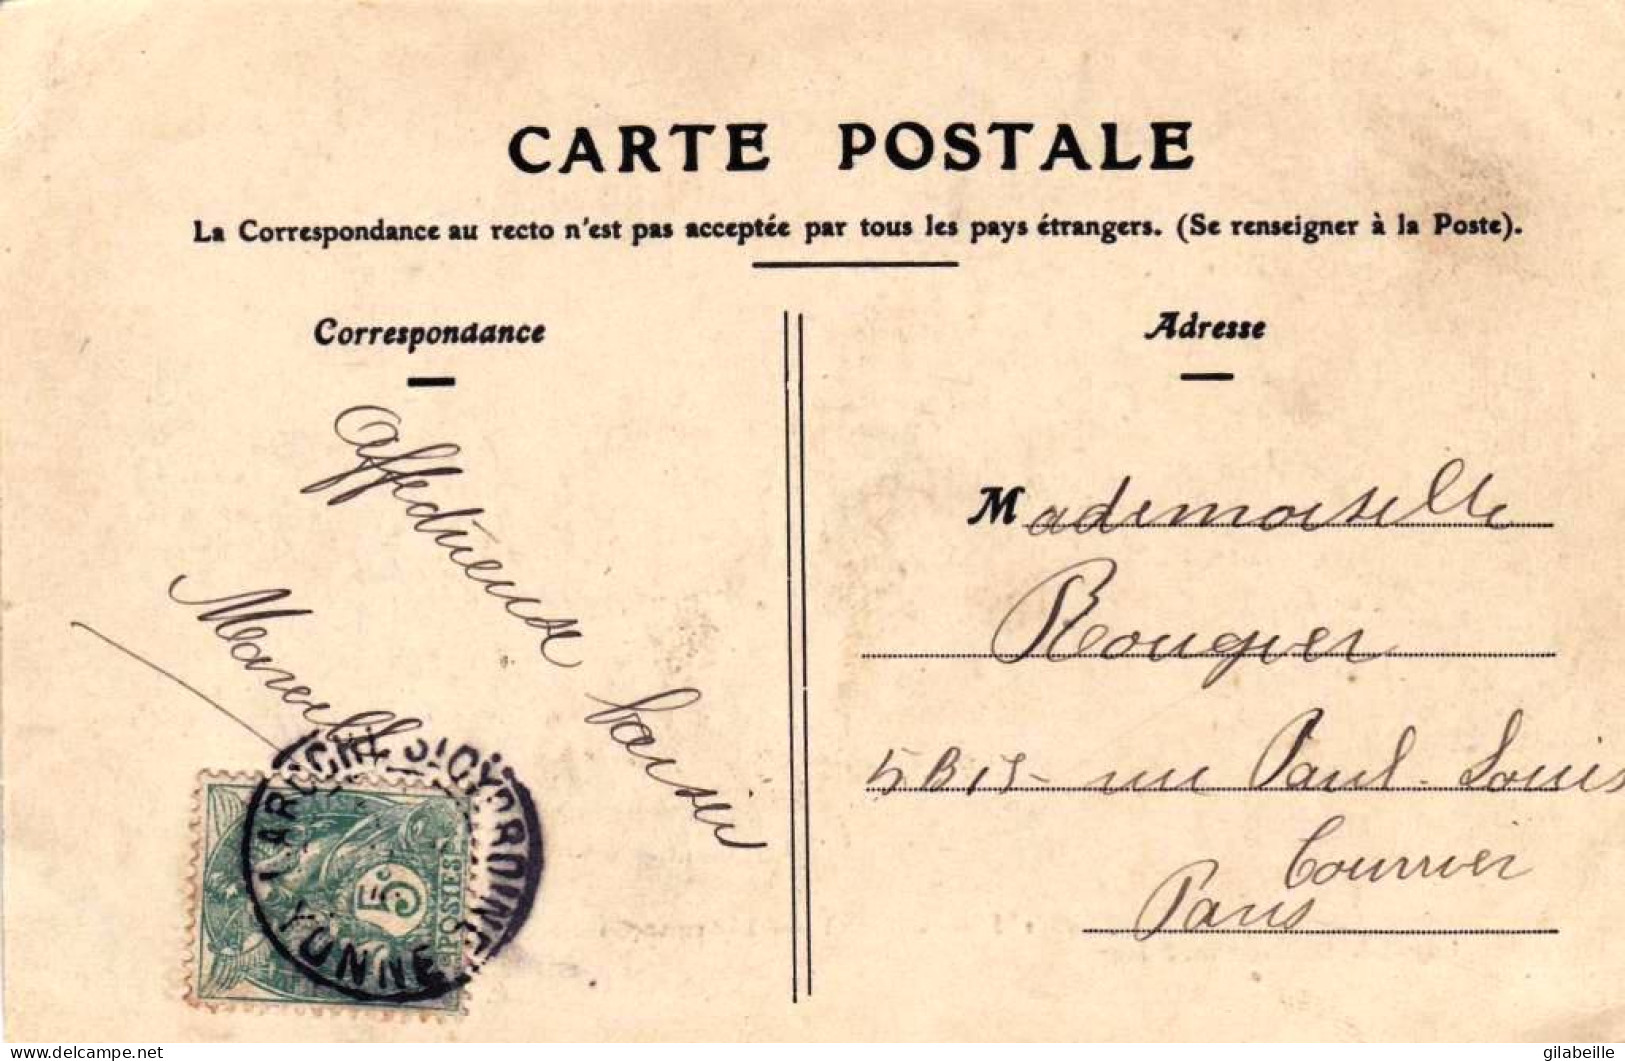 CARTE POSTALE
La Correspondance au recto n'est pas acceptée par tous les pays étrangers. (Se renseigner à la Poste).
Correspondance
Affectueux baisers
Adresse
Mademoiselle
Rougier
5 Bis rue Paul-Louis
Courrier
Paris
LAROCHE-ST-CYDROINE
YONNE
5c
POSTES
delcampe.net
gilabeille